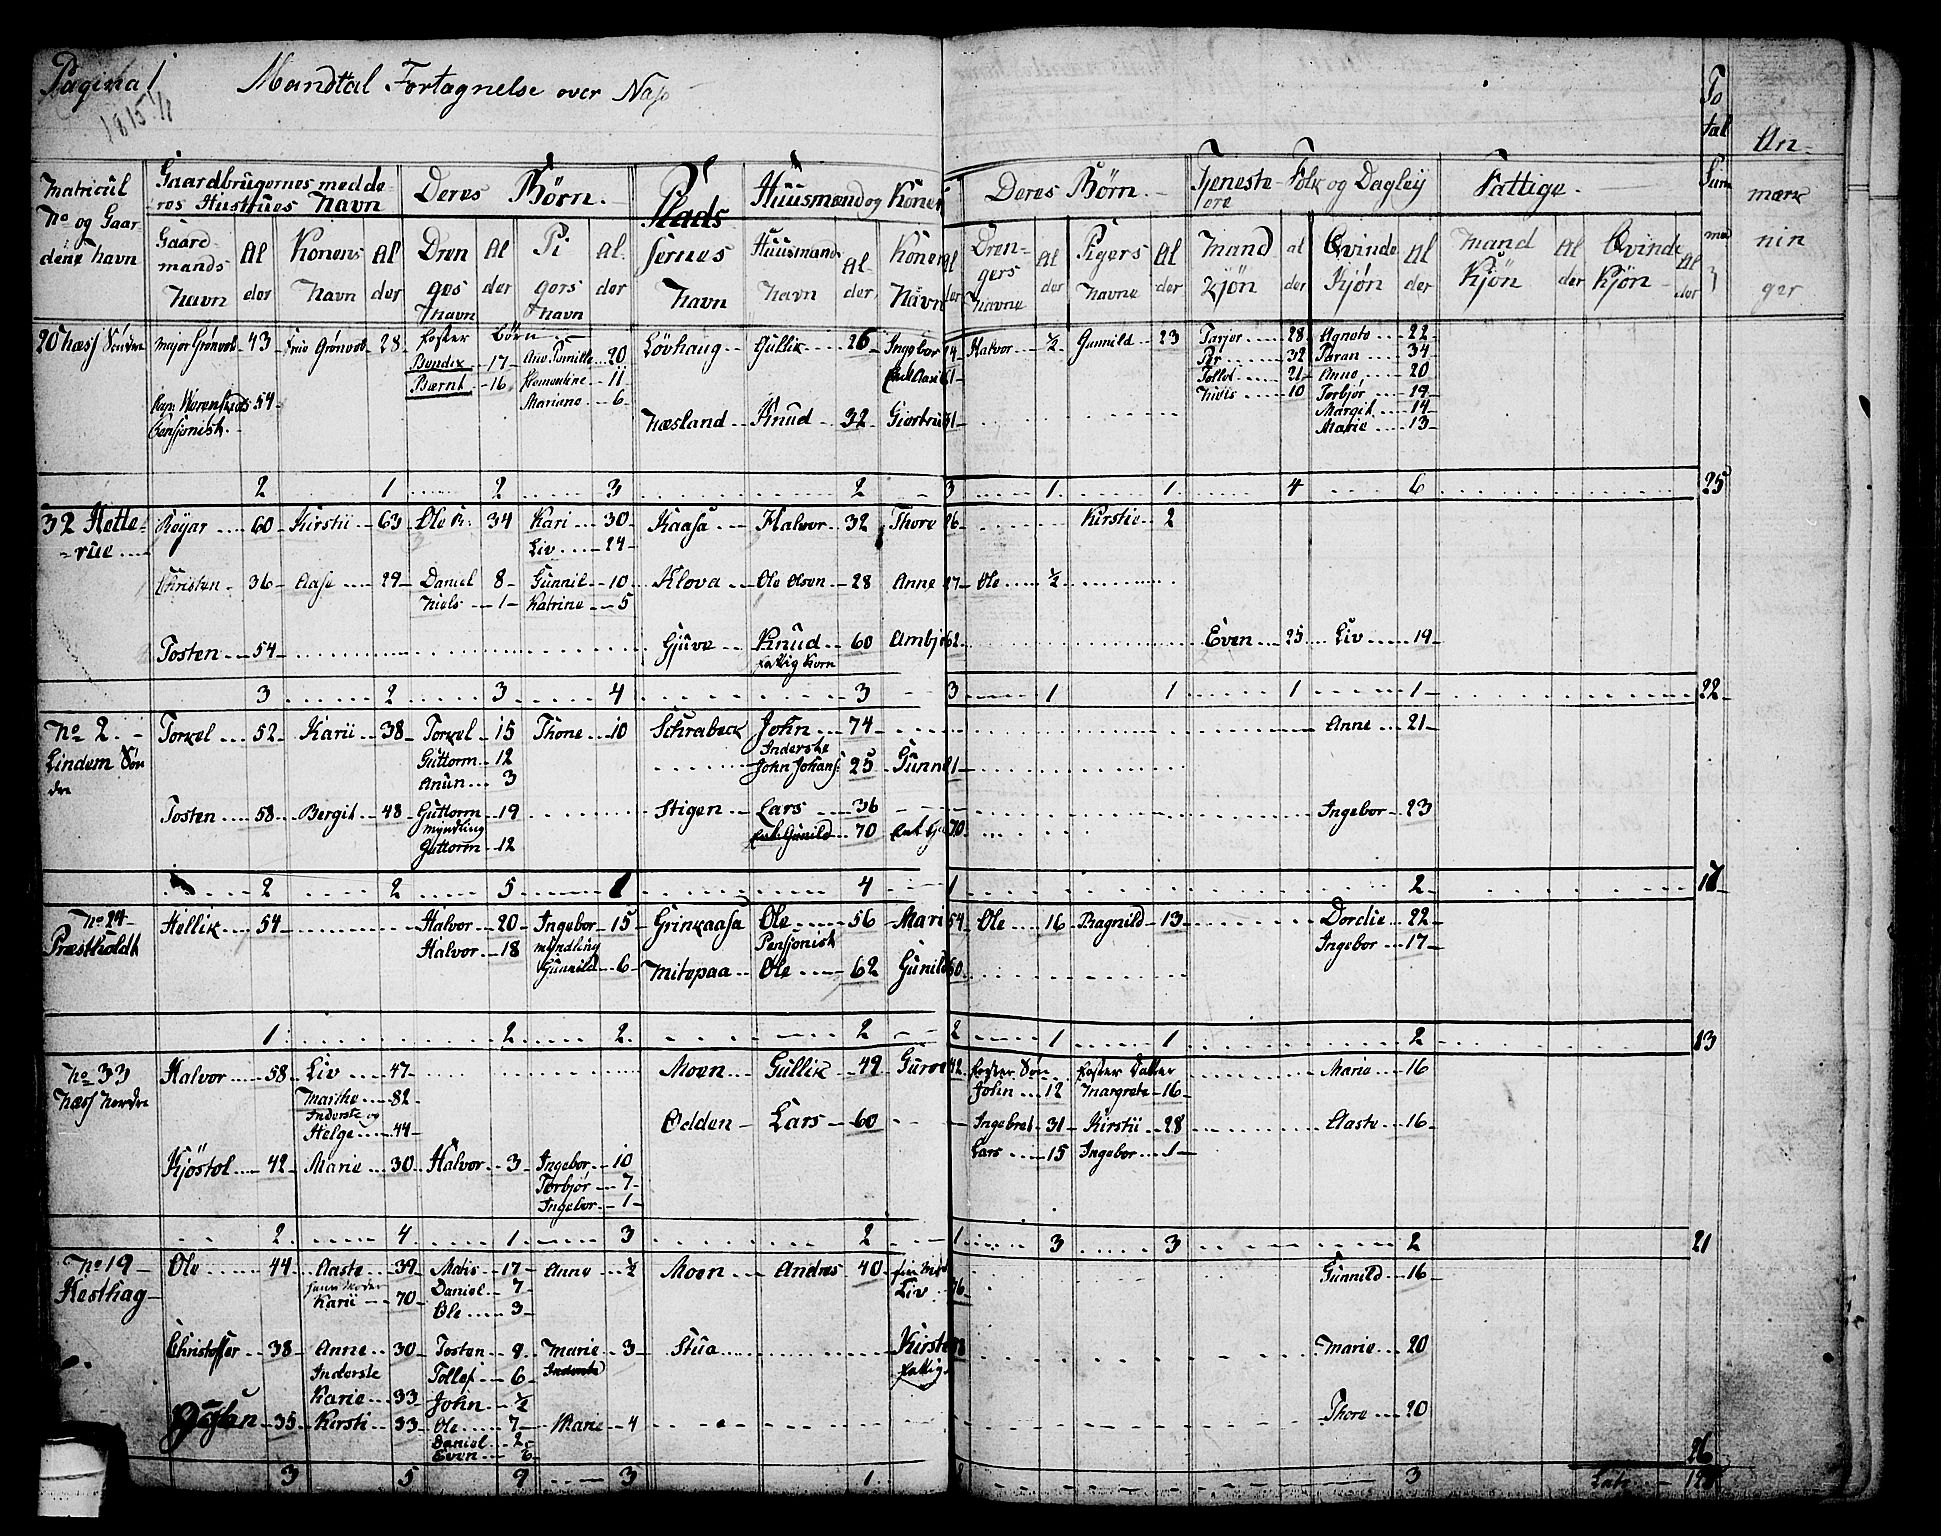 Pagina 1
1815
Mandtal Fortagnelse over Næs
Matricul No og Gaardene Navn | Gaardbrugernes med deres Hustrues Navn | Deres Børn. | Pladsernes Navn | Huusmænd og Koner | Deres Børn. | Tjeneste Folk og Dagley | Fattige. | Total Sum | Anmærkninger
Gaardmands Navn | Alder | Konens Navn | Alder | Drenges Navn | Alder | Pigers Navn | Alder | Huusmands Navn | Alder | Koner Navn | Alder | Drengers Navne | Alder | Pigers Navne | Alder | Mand Kjøn | Alder | Qvinde Kjøn | Alder | Mand Kjøn | Alder | Qvinde Kjøn | Alder
Foster Børn
20 Næss Søndre | Major Grønvol 43 | Grønvol 28 | Bendix 17 | 20 | Lövhaug | Gullik 26 | Ingebor | Halvor ½ | Gunnild 23 | Tarjer 28 | Agnete 22
Bærnt 16 | Klementine 11 | Per 32 | Paran 34
54 | Mariane 6 | Tollef 21 | Anne 20
Pensjonist | Næsland | Knud 32 | Giertru 31 | Nivis 10 | Torbjør 19
Margit 14
Marie 13
2 | 1 | 2 | 3 | 2 | 3 | 1 | 1 | 4 | 6 | 25
32 Hetterüe | Roÿar 60 | Kirstii 63 | Ole 34 | Kari 30 | Kaasa | Halvor 32 | Thore 26 | Kirstie 2
Liv 24
Christen 36 | Aase 29 | Daniel 8 | Gunnil 10 | Klova | Ole Olsen 28 | Anne 27 | Ole ½
Niels 1 | Katrine 5
Tosten 54 | Gjuve | Knud 60 | Ambjø 62 | Even 25 | Liv 19
fattig
3 | 2 | 3 | 4 | 3 | 3 | 1 | 1 | 1 | 1 | 22
No 2 Lindem Søndre | Torkel 52 | Karii 38 | Torkel 15 | Thone 10 | Schrabeck | John 74 | Anne 21
Guttorm 12 | Inderste
Anün 3 | John Johans: 25 | Gunne
Tosten 58 | Bergit 48 | Guttorm 19 | Stigen | Lars 36 | Ingebor 23
Myndling | Enk: Gunild 70 | Enk: 70
Guttorm 12
2 | 2 | 5 | 1 | 4 | 1 | 2 | 17
No 24 Præstholdt | Hellik 54 | Halvor 20 | Ingebor 15 | Grinkaasa | Ole 56 | Mari 54 | Ole 16 | Ragnild 13 | Dordie 22
Halvor 18 | Myndling | Pensjonist | Ingebor 17
Gunnild 6 | Mitopaa | Ole 62 | Gunild 60
1 | 2 | 2 | 2 | 2 | 1 | 1 | 2 | 13
No 33 Næss Nordre | Halvor 58 | Liv 47 | Moen | Gullik 49 | Guroe 42 | Foster Søn | Foster Datter | Marie 16
Marthe 82 | John 12 | Margrete 16
Inderste og
Helge 44 | Odden | Lars 60 | Ingebret 31 | Kirstii 28 | Aaste 16
Kjöstol 42 | Marie 30 | Halvor 3 | Ingebor 10 | Lars 15 | Ingebor 1
Torbjør 7
Ingebor 1
2 | 4 | 1 | 3 | 2 | 1 | 3 | 3 | 2 | 21
No 19 Hesthag | Ole 44 | Aaste 39 | Matis 17 | Anne ½ | Moen | Andres 40 | Gunnild 16
Karii 70 | Daniel 7 | Liv 76
Ole 3
Christoffer 38 | Anne 30 | Tosten 9 | Marie 3 | Stua | Kirste | Marie 20
Inderste | Tollef 6 | Inderste | fattig
Karie 33 | John ½
35 | Kirsti 33 | Ole 7 | Marie 4 | Thore 20
Daniel 2
Even ½
3 | 5 | 9 | 3 | 1 | 2 | 3 | 26
Late